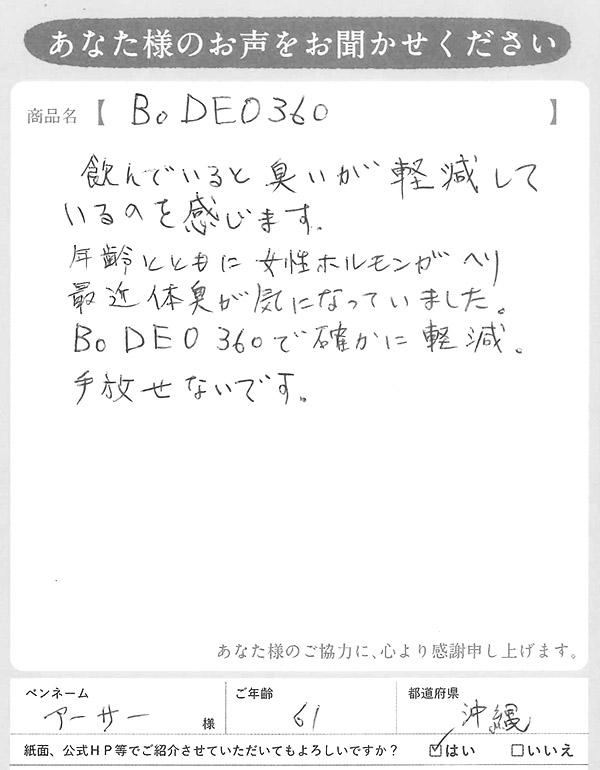 あなた様のお声をお聞かせください
商品名【 Bo DEO 360 】
飲んでいると臭いが軽減して
いるのを感じます.
年齢とともに女性ホルモンがヘリ
最近体臭が気になっていました。
Bo DEO 360で確かに軽減。
手放せないです。
あなた様のご協力に、心より感謝申し上げます。
ペンネーム ご年齢 都道府県
アーサー 様 61 沖縄
紙面、公式HP等でご紹介させていただいてもよろしいですか？ ☑はい □いいえ